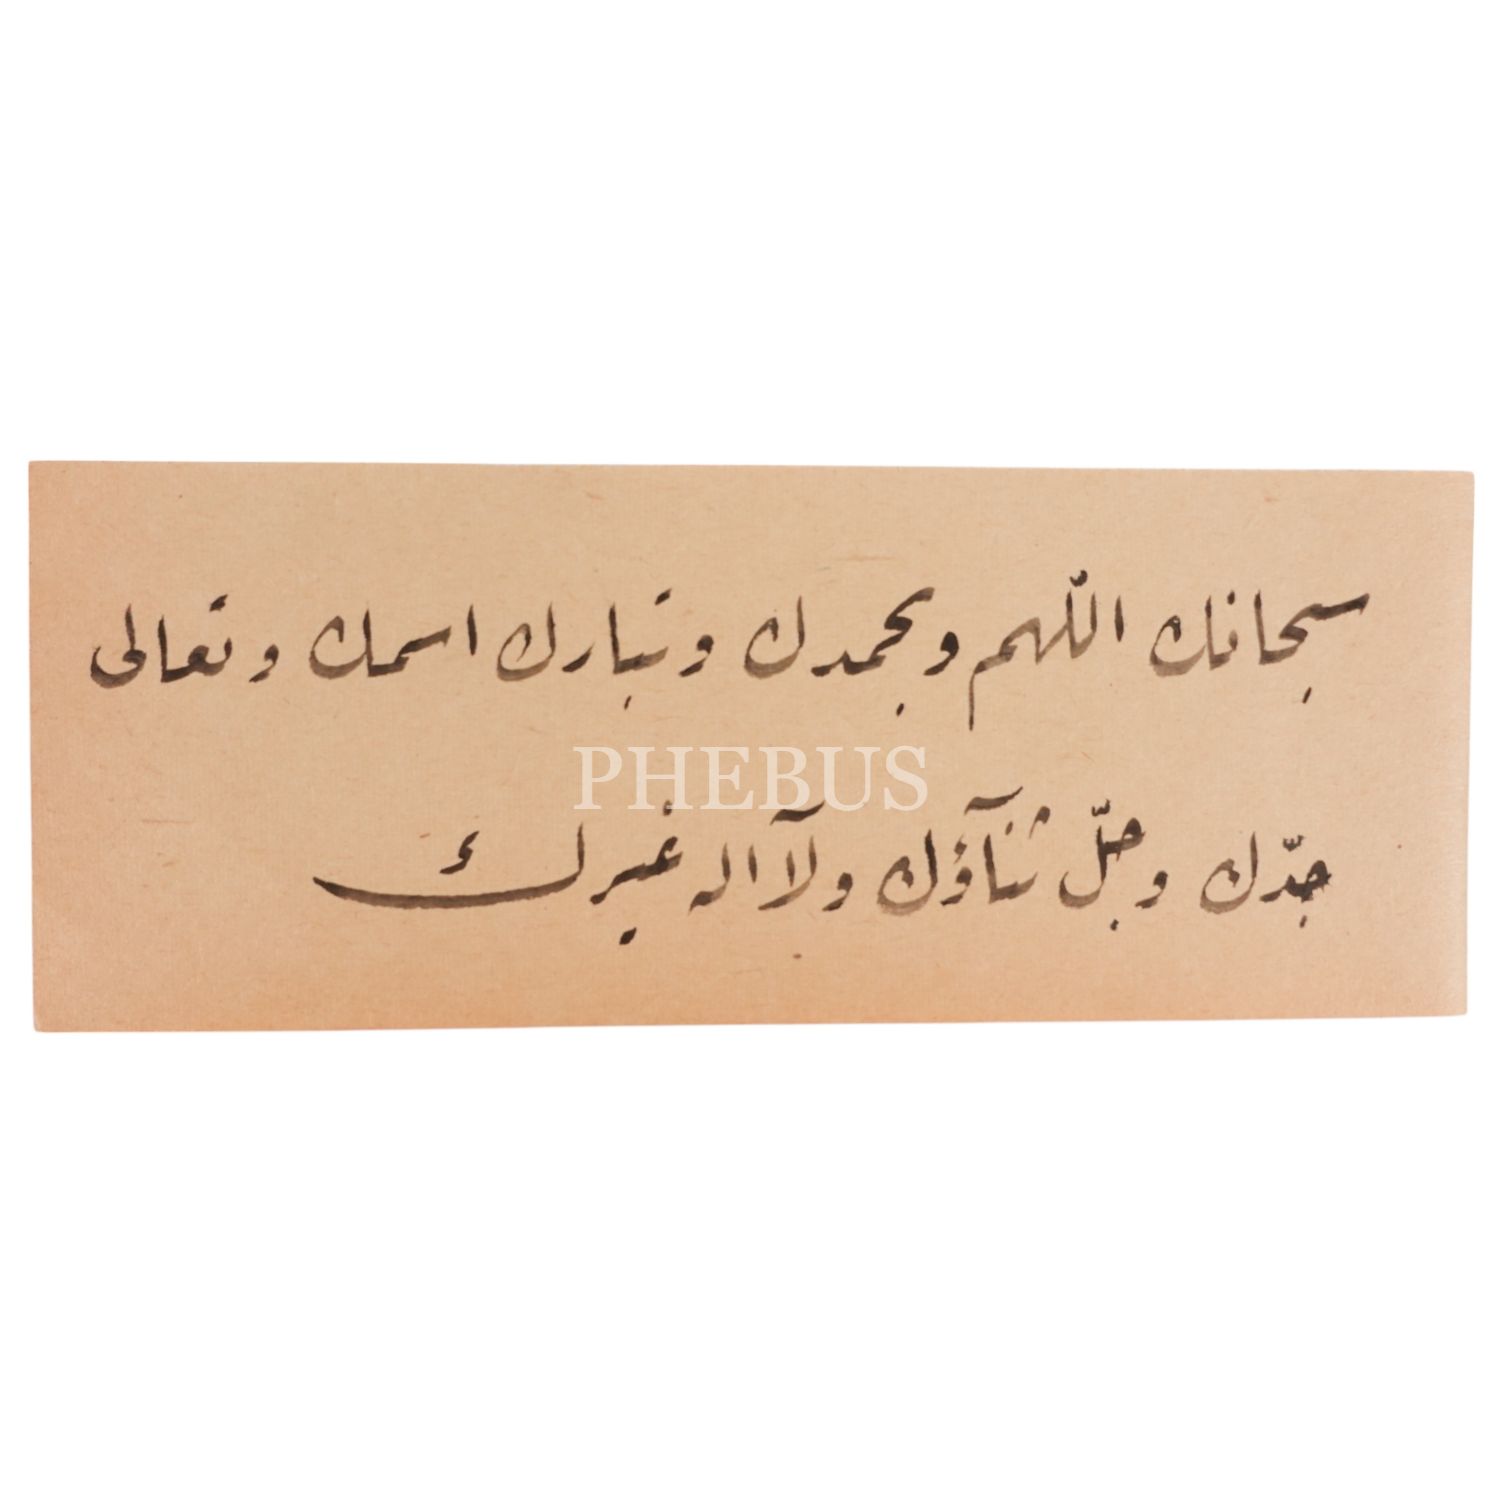 سبحانك اللّهم وبحمدك وتبارك اسمك وتعالى
PHEBUS
جدّك وجلّ ثنآؤك ولآ اله غيرك